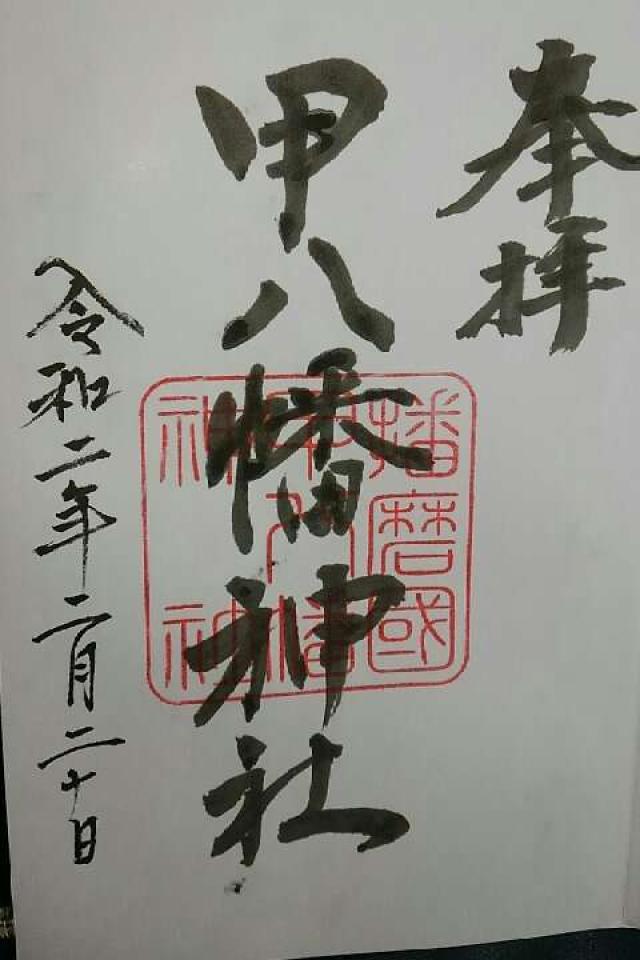 奉拝
甲八幡神社
播磨國
甲八幡
神社
令和二年二月二十日